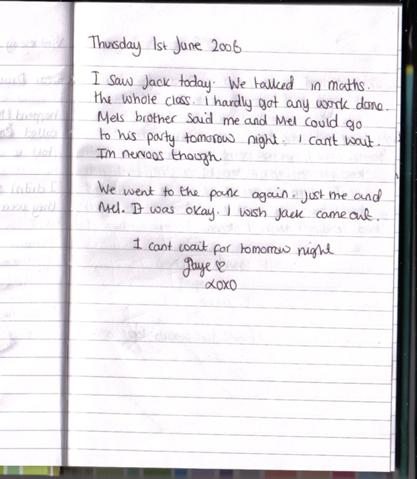 Thursday 1st June 2006
I saw Jack today. We talked in maths.
the whole class. I hardly got any work done.
Mels brother said me and Mel could go
to his party tomorow night. I cant wait.
Im nervous though.
We went to the park again. just me and
Mel. It was okay. I wish Jack came out.
I cant wait for tomorrow night
Faye ♡
xoxo